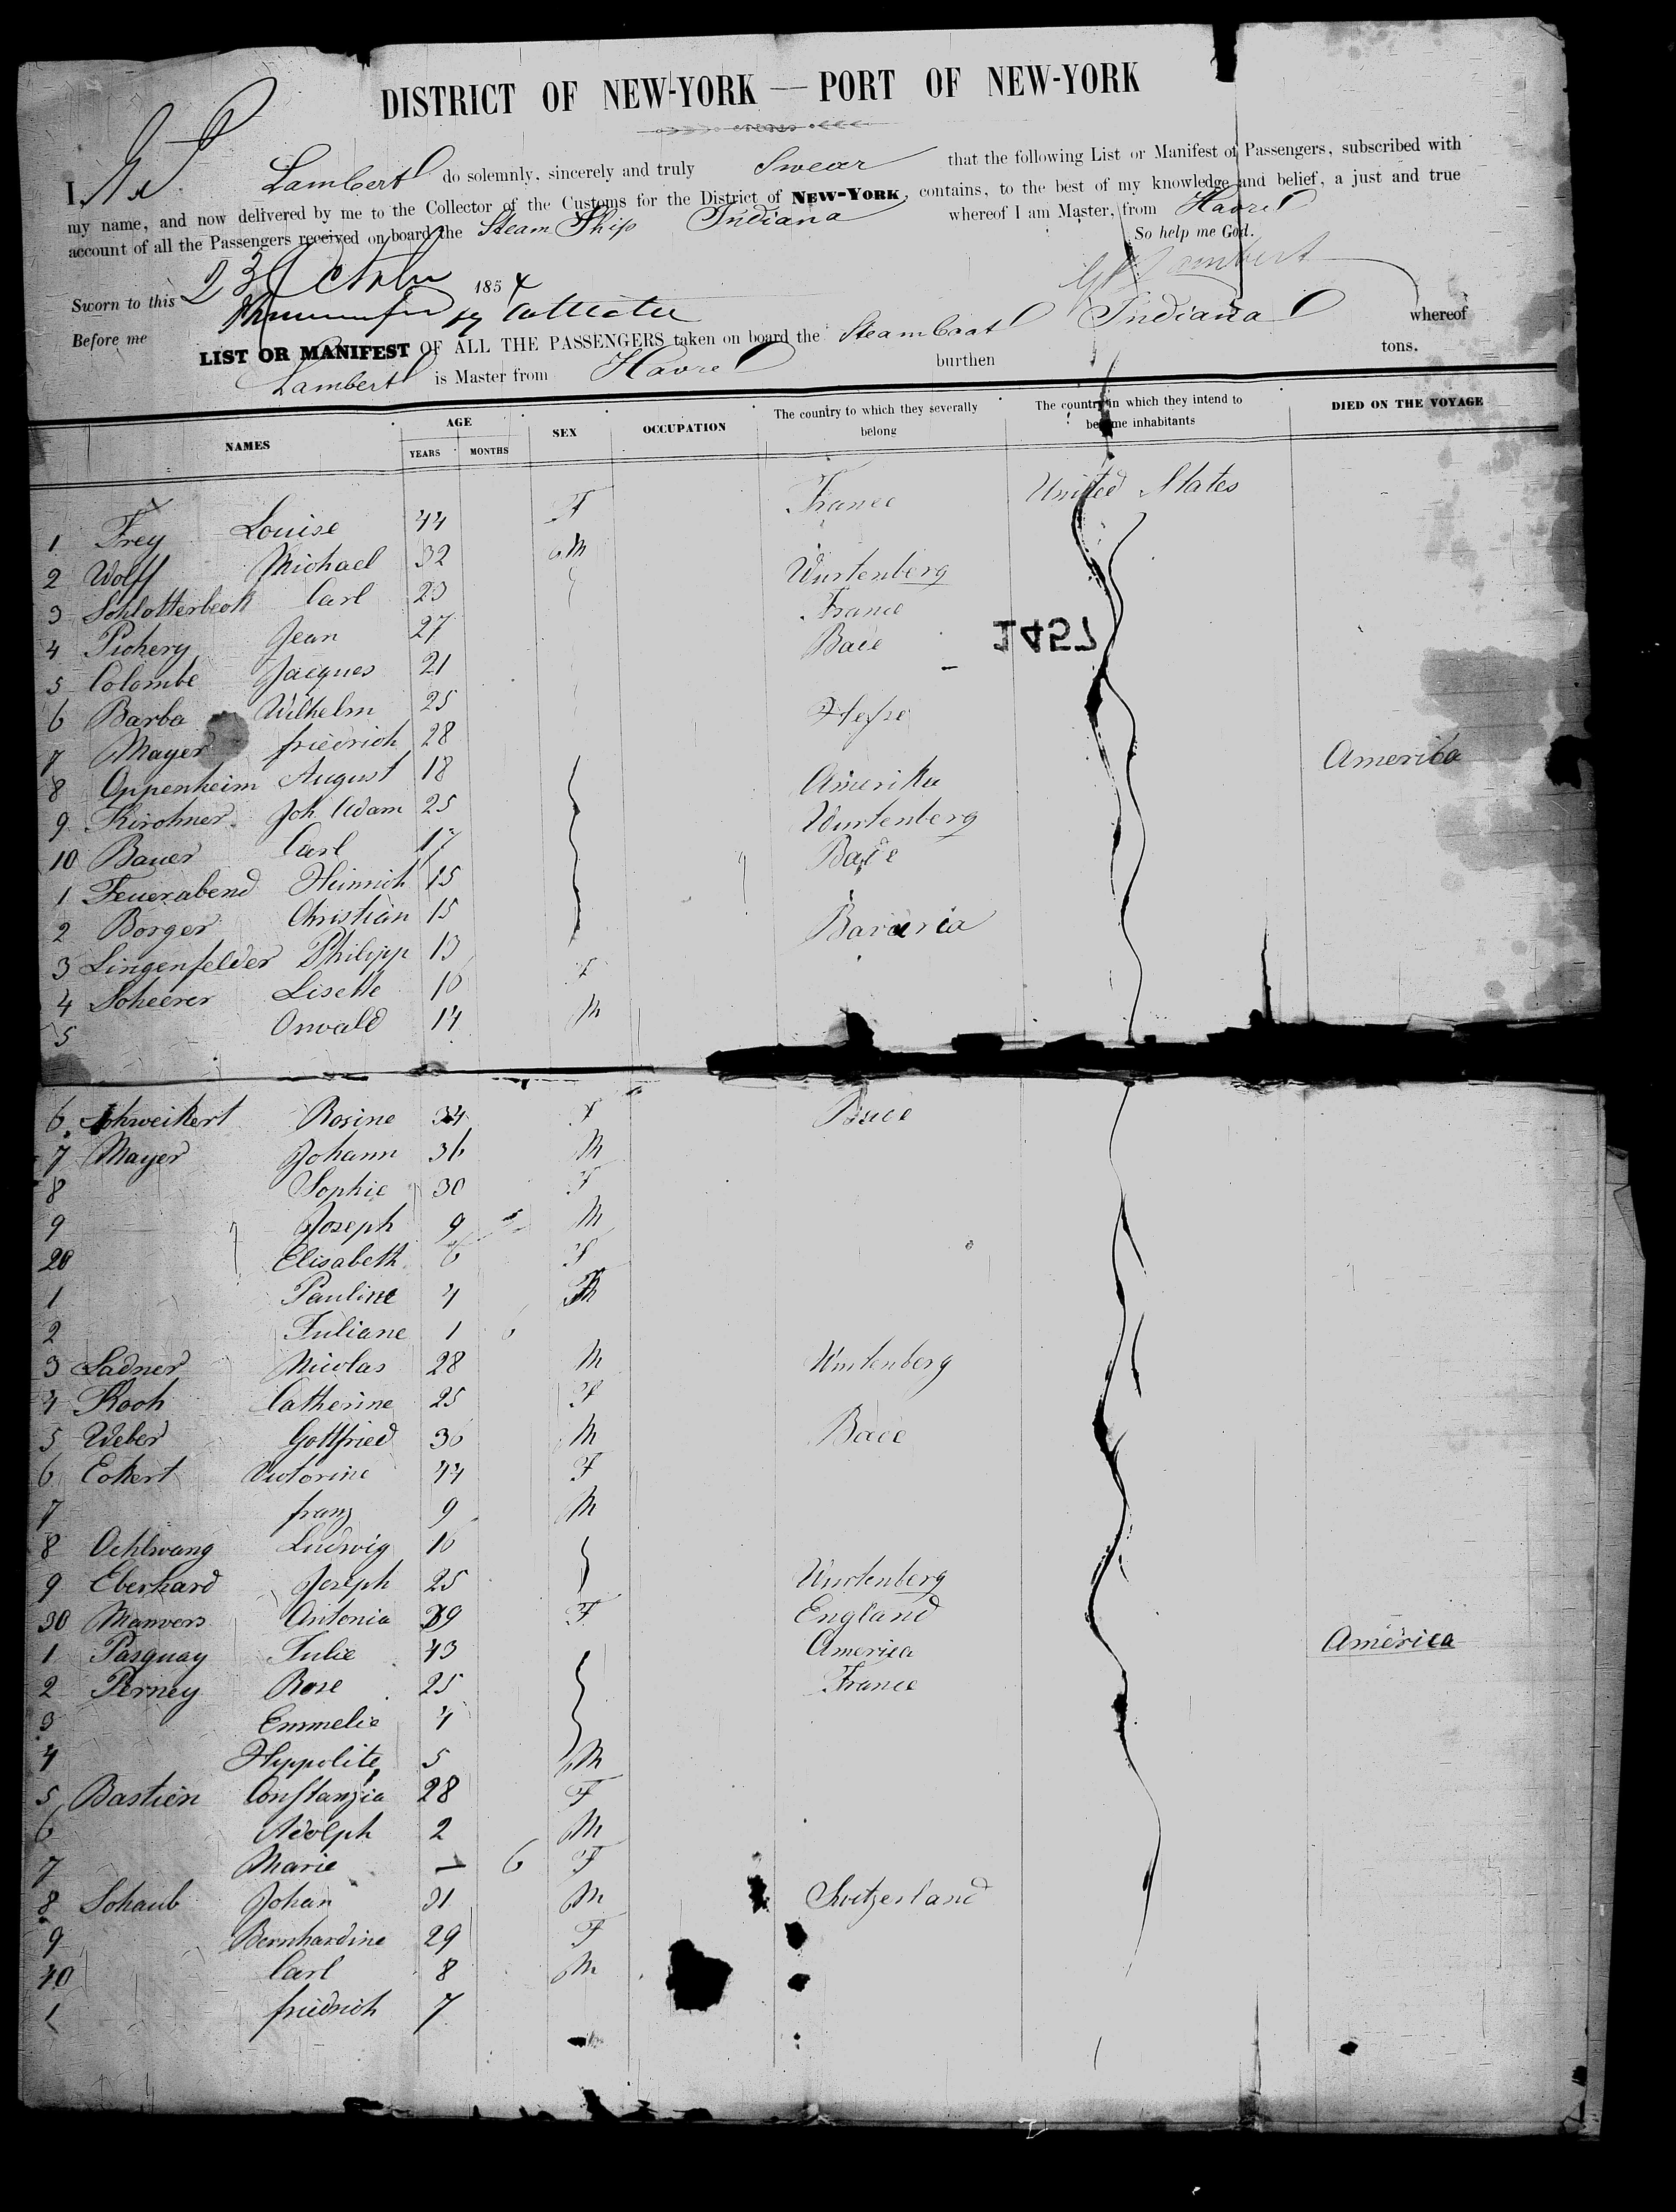 DISTRICT OF NEW-YORK — PORT OF NEW-YORK
I, Lambert do solemnly, sincerely and truly Swear that the following List or Manifest of Passengers, subscribed with
my name, and now delivered by me to the Collector of the Customs for the District of NEW-YORK, contains, to the best of my knowledge and belief, a just and true
account of all the Passengers received on board the Steam Ship Indiana whereof I am Master, from Havre
So help me God.
Sworn to this 23 October 1854 Lambert
Before me
LIST OR MANIFEST OF ALL THE PASSENGERS taken on board the Steamboat Indiana whereof
Lambert is Master from Havre burthen tons.
NAMES AGE YEARS MONTHS SEX OCCUPATION The country to which they severally belong The country in which they intend to become inhabitants DIED ON THE VOYAGE
1 Frey Louise 44 F France United States
2 Wolff Michael 32 M Wurtenberg
3 Schlotterbeck Carl 23 France
4 Pichery Jean 27 Bade
1457
5 Colombe Jacques 21
6 Barba Wilhelm 25 Hesse
7 Mayer friedrich 28
8 Oppenheim August 18 Amerika America
9 Kirchner Joh. Adam 25 Wurtenberg
10 Bauer Carl 17 Bade
1 Feuerabend Heinrich 15
2 Borger Christian 15 Bavaria
3 Lingenfelder Philipp 13
4 Scheerer Lisette 16 F
5 Oswald 14 M
6 Schweikert Rosine 34 F Bade
7 Mayer Johann 36 M
8 Sophie 30 F
9 Joseph 9 M
20 Elisabeth 6 F
1 Pauline 4
2 Juliane 1 6
3 Ladner Nicolas 28 M Wurtenberg
4 Koch Catherine 25 F
5 Weber Gottfried 30 M Bade
6 Eckert Victorine 44 F
7 franz 9 M
8 Oehlwang Ludwig 16
9 Eberhard Joseph 25 Wurtenberg
30 Manvers Antonia 39 F England
1 Pasquay Julie 43 America America
2 Perney Rose 25 France
3 Emmelie 4
4 Hyppolite 5 M
5 Bastien Constanzia 28 F
6 Adolph 2 M
7 Marie — 6 F
8 Schaub Johan 31 M Switzerland
9 Bernhardine 29 F
40 Carl 8 M
1 friedrich 7